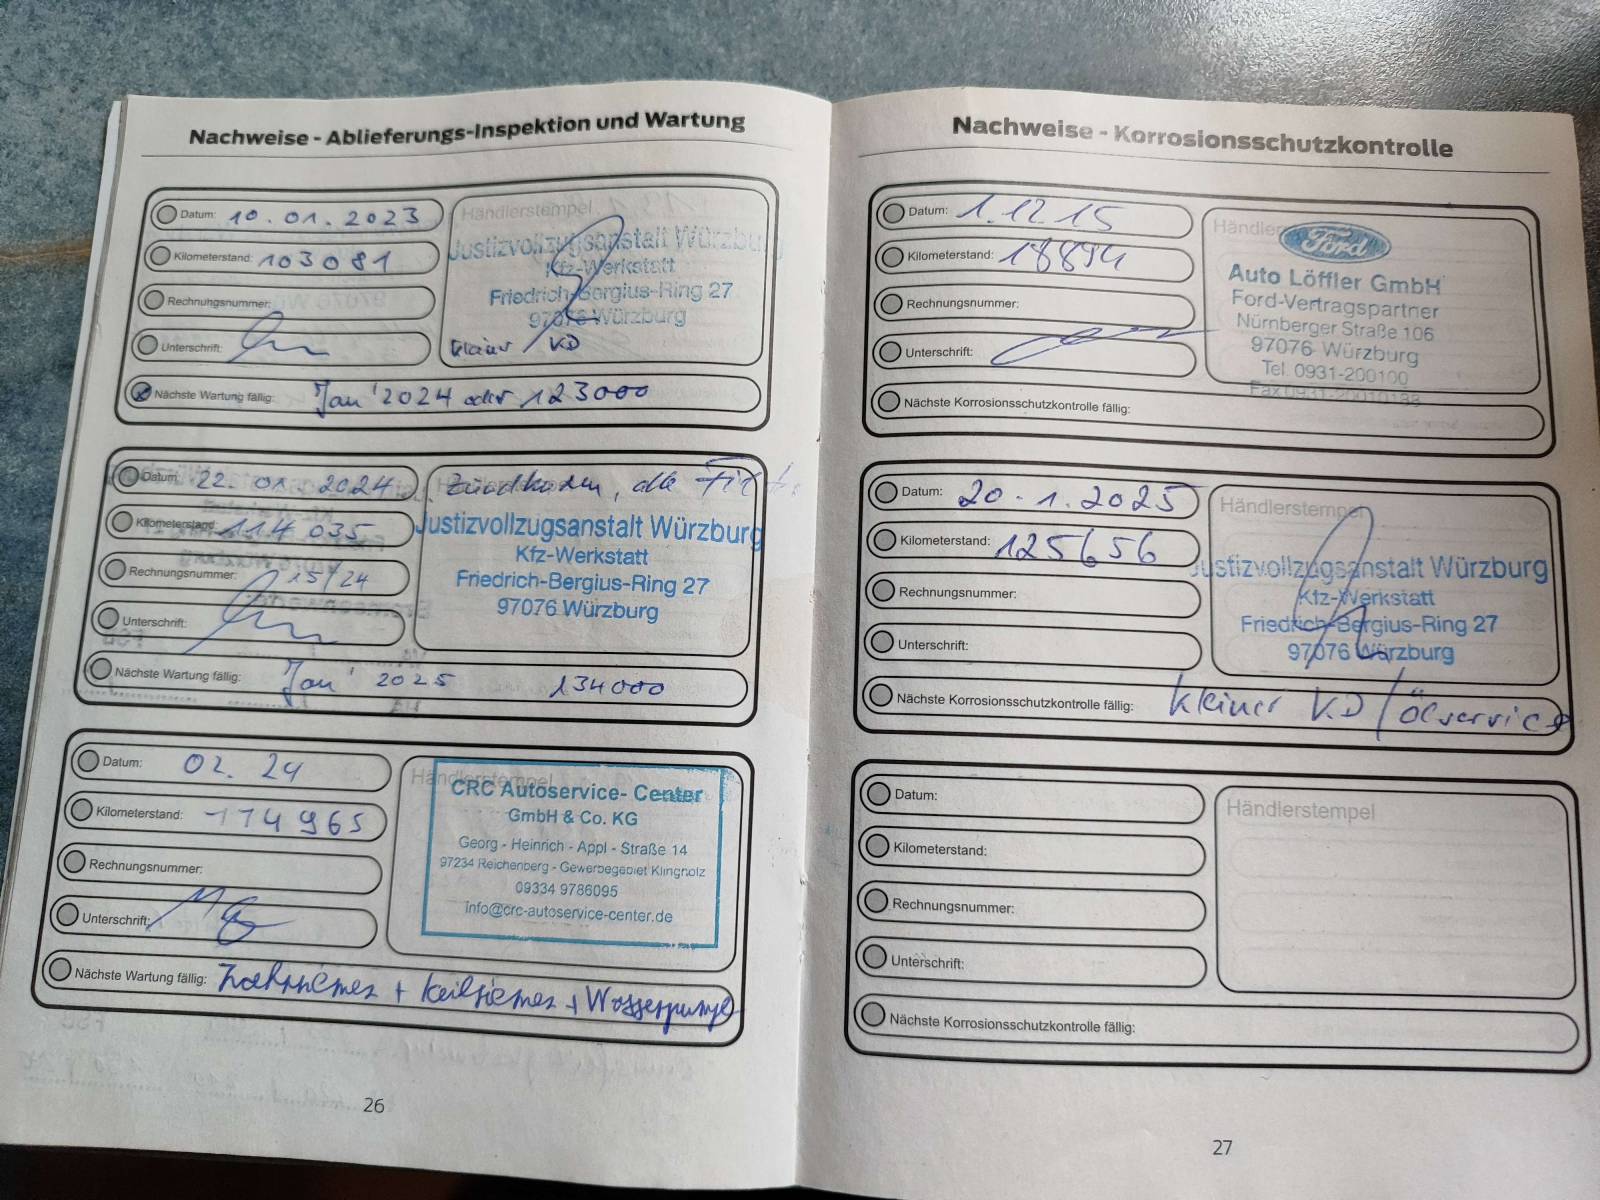 Nachweise - Ablieferungs-Inspektion und Wartung
Datum: 10.01.2023
Kilometerstand: 103081
Rechnungsnummer:
Unterschrift:
Händlerstempel
Justizvollzugsanstalt Würzbu
Kfz-Werkstatt
Friedrich-Bergius-Ring 27
97076 Würzburg
kleiner KD
Nächste Wartung fällig: Jan' 2024 oder 123000
Datum: 22. 01. 2024
Kilometerstand: 114 035
Rechnungsnummer: 15/24
Unterschrift:
Zündkerzen, alle
Justizvollzugsanstalt Würzburg
Kfz-Werkstatt
Friedrich-Bergius-Ring 27
97076 Würzburg
Nächste Wartung fällig: Jan' 2025 134000
Datum: 02. 24
Kilometerstand: 114965
Rechnungsnummer:
Unterschrift:
Händlerstempel
CRC Autoservice- Center
GmbH & Co. KG
Georg - Heinrich - Appl - Straße 14
97234 Reichenberg - Gewerbegebiet Klingholz
09334 9786095
info@crc-autoservice-center.de
Nächste Wartung fällig: Zahnriemen + Keilriemen + Wasserpumpe
26
Nachweise - Korrosionsschutzkontrolle
Datum: 1.12.15
Kilometerstand: 18894
Rechnungsnummer:
Unterschrift:
Händler
Ford
Auto Löffler GmbH
Ford-Vertragspartner
Nürnberger Straße 106
97076 Würzburg
Tel. 0931-200100
Fax 0931-20010188
Nächste Korrosionsschutzkontrolle fällig:
Datum: 20.1.2025
Kilometerstand: 125656
Rechnungsnummer:
Unterschrift:
Händlerstempel
Justizvollzugsanstalt Würzburg
Kfz-Werkstatt
Friedrich-Bergius-Ring 27
97076 Würzburg
Nächste Korrosionsschutzkontrolle fällig: kleiner KD / Ölservice
Datum:
Kilometerstand:
Rechnungsnummer:
Unterschrift:
Händlerstempel
Nächste Korrosionsschutzkontrolle fällig:
27